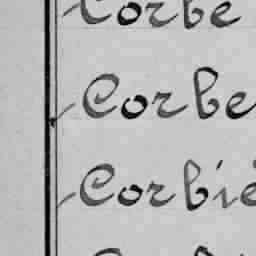 Corbe
Corbe
Corbie